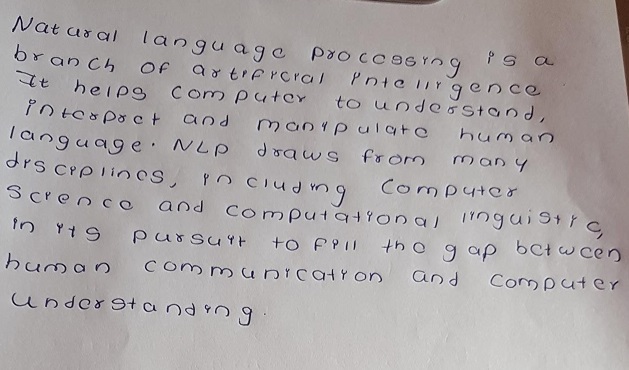 Natural language processing is a
branch of artificial intelligence
It helps computer to understand,
interpret and manipulate human
language. NLP draws from many
disciplines, including computer
science and computational linguistic,
in its pursuit to fill the gap between
human communication and computer
understanding.